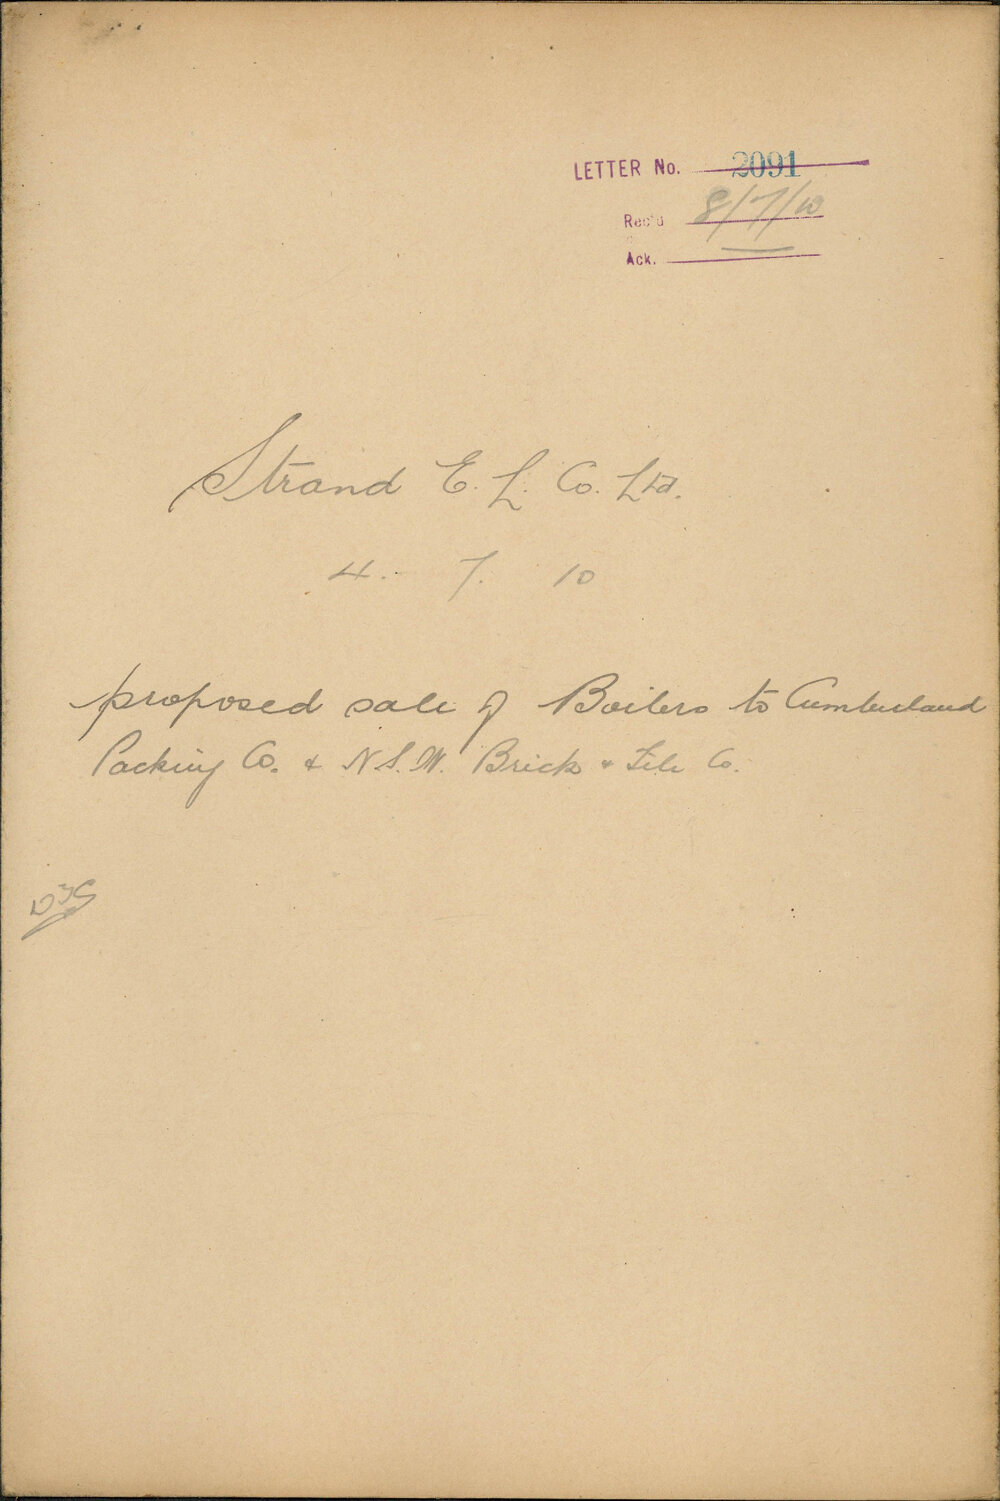 LETTER No. 2091
Rec'd 8/7/10
Ack.
Strand E. L. Co. Ltd.
4. 7. 10
proposed sale of Boilers to Cumberland
Packing Co. & N.S.W. Brick & Tile Co.